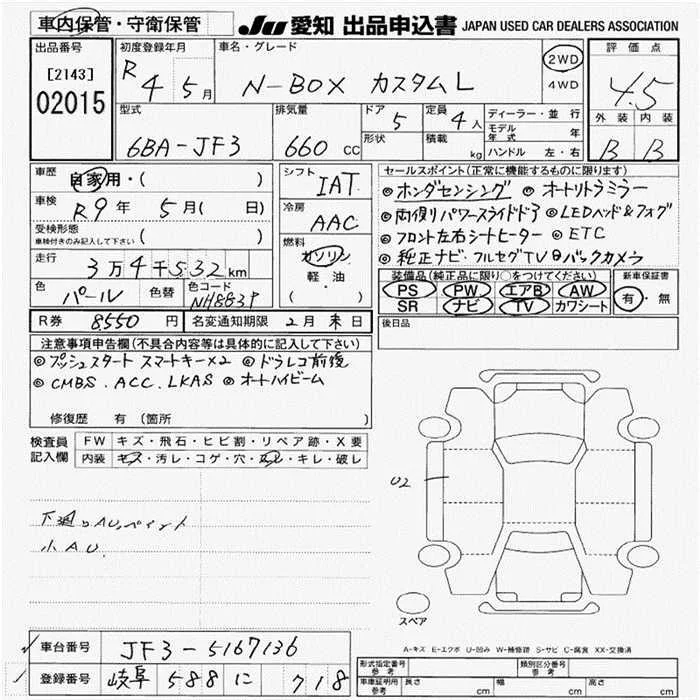 車内保管・守衛保管
JU 愛知 出品申込書 JAPAN USED CAR DEALERS ASSOCIATION
出品番号
[2143]
02015
初度登録年月
R 4 5月
車名・グレード
N-BOX カスタムL
2WD
4WD
評価点
4.5
外装 内装
B B
型式
6BA-JF3
排気量
660 CC
ドア
5
形状
定員
4人
積載
kg
ディーラー・並行
モデル年式 年
ハンドル 左・右
車歴
自家用・( )
車検
R9年 5月( 日)
受検形態
車検付きのみ記入して下さい ( )
走行
3万4千532km
色
パール
色替
色コード
NH883P
シフト
IAT
冷房
AAC
燃料
ガソリン
軽・油
( )
セールスポイント(正常に機能するものに限ります)
◎ホンダセンシング ◎オートリトラミラー
◎両側パワースライドドア ◎LEDヘッド&フォグ
◎フロント左右シートヒーター ◎ETC
◎純正ナビ・フルセグTV ◎バックカメラ
装備品(純正品に限り○をつけてください)
PS PW エアB AW
SR ナビ TV カワシート
新車保証書
有・無
後日品
R券 8550円
名変通知期限 2月末日
注意事項申告欄(不具合内容等は具体的に記入して下さい)
◎プッシュスタート スマートキー×2 ◎ドラレコ前後
◎CMBS.ACC.LKAS ◎オートハイビーム
修復歴 有(箇所 )
検査員記入欄
FW キズ・飛石・ヒビ割・リペア跡・X要
内装 キズ・汚レ・コゲ・穴・スレ・キレ・破レ
下廻りAU,ペイント
小AU.
U2
スペア
A-キズ E-エクボ U-凹み W-補修跡 S-サビ C-腐食 XX-交換済
車台番号 JF3-5167136
登録番号 岐阜 588 に 718
形式指定番号 参考
類別区分番号 参考
車庫証明用 参考 長さ cm 幅 cm 高さ cm